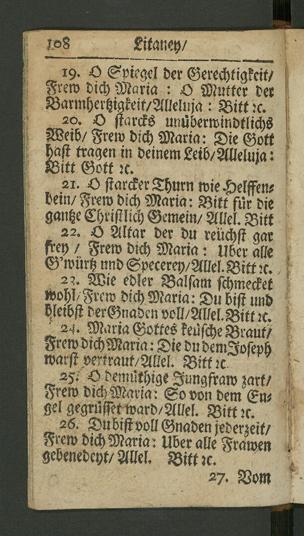 108 Litaney/
19. O Spiegel der Gerechtigkeit/
Frew dich Maria : O Mutter der
Barmhertzigkeit/Alleluja : Bitt ꝛc.
20. O starcks unüberwindtlichs
Weib/ Frew dich Maria: Die Gott
hast tragen in deinem Leib/Alleluja:
Bitt Gott ꝛc.
21. O starcker Thurn wie Helffen-
bein/Frew dich Maria: Bitt für die
gantze Christlich Gemein/ Allel. Bitt
22. O Altar der du reüchst gar
frey / Frew dich Maria: Uber alle
G'würtz und Specerey/Allel. Bitt ꝛc.
23. Wie edler Balsam schmecket
wohl/Frew dich Maria: Du bist und
bleibst der Gnaden voll/Allel. Bitt ꝛc.
24. Maria Gottes keusche Braut/
Frew dich Maria: Die du dem Joseph
warst vertraut/Allel. Bitt ꝛc.
25. O demüthige Jungfraw zart/
Frew dich Maria: So von dem En-
gel gegrüsset ward/Allel. Bitt ꝛc.
26. Du bist voll Gnaden jederzeit/
Frew dich Maria: Uber alle Frawen
gebenedeyt/ Allel. Bitt ꝛc.
27. Vom